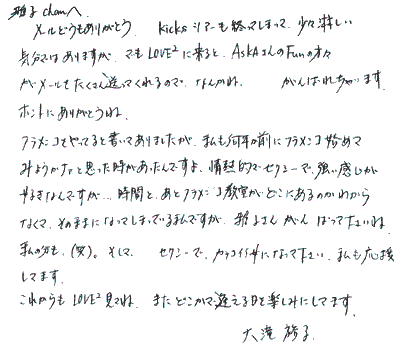 chanへ
メールどうもありがとう。 Kicks ツアーも終ってしまって、少々淋しい
気分ではありますが、でもLOVE²に来ると、ASKAさんのFunの方々
がメールをたくさん送ってくれるので、なんかね、 がんばれちゃいます
ホントにありがとうね
フラメンコをやってると書いてありましたが、私も何年か前にフラメンコ始めて
みようかナァと思った時があったんですよ、情熱的でセクシーで、強い感じが
好きなんですが、時間と、あとフラメンコ教室がどこにあるのかわから
なくて、そのままになってしまっている私ですが、 さん がんばって下さいね
私の分も、(笑)。そして、 セクシーで、カッコイイ女になって下さい、私も応援
してます
これからもLOVE²見てね、またどこかで逢える日を楽しみにしてます
大滝裕子